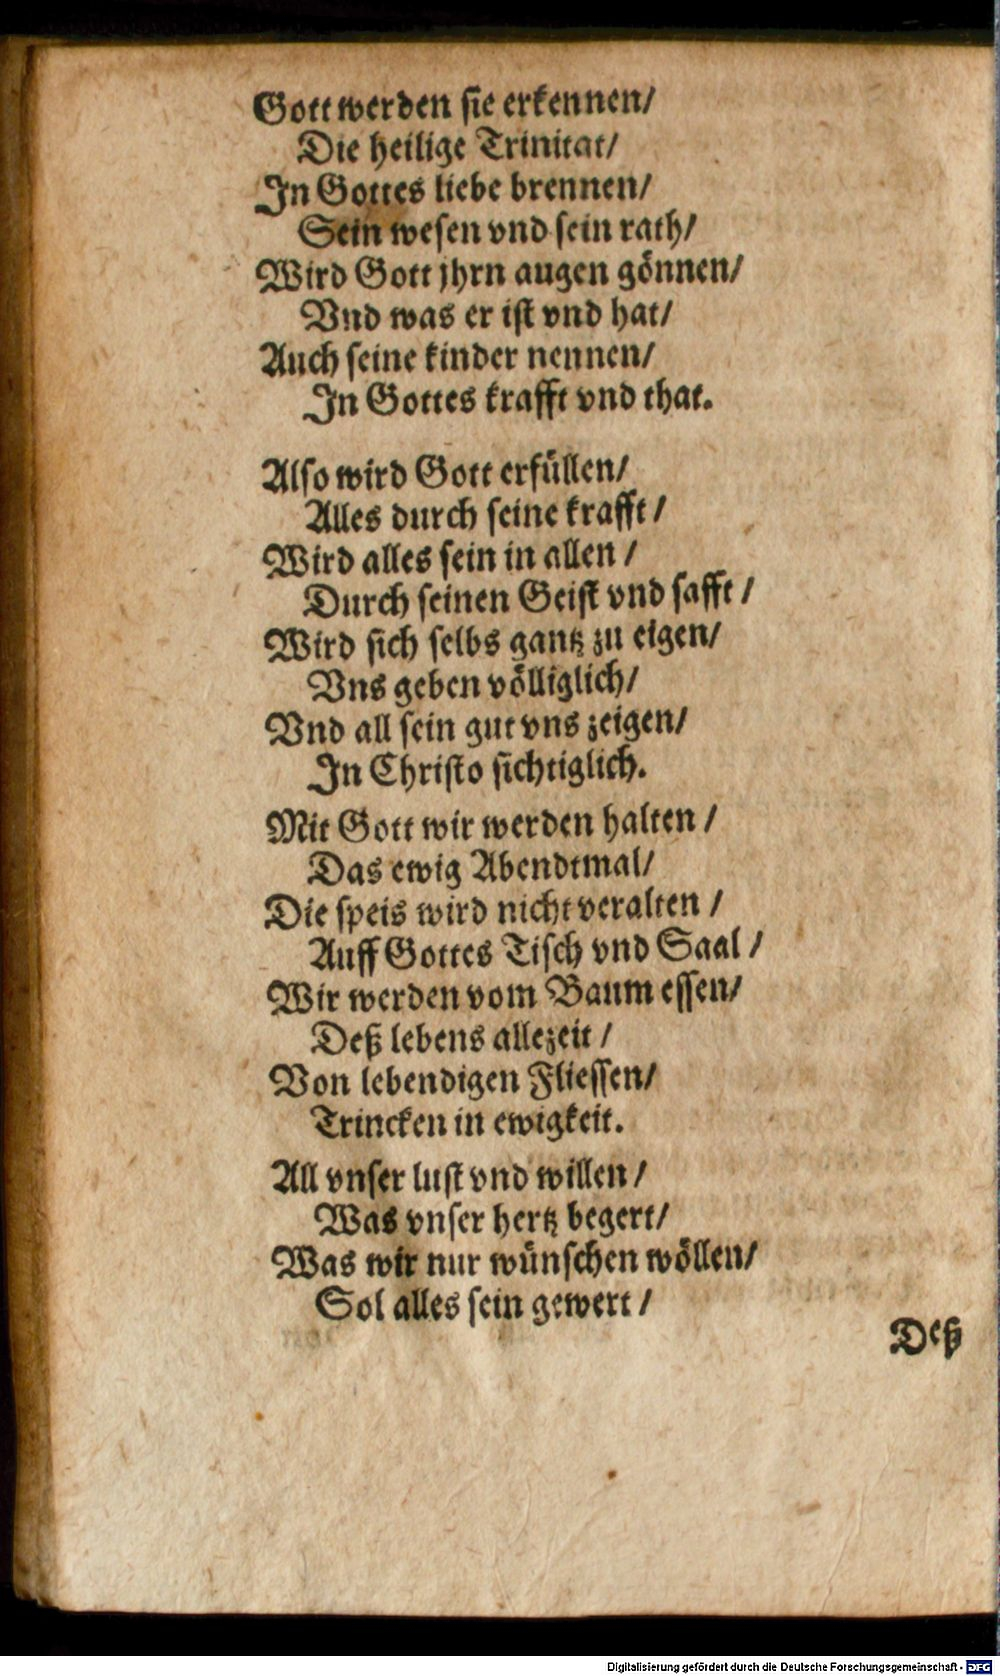 Gott werden sie erkennen/
Die heilige Trinitat/
In Gottes liebe brennen/
Sein wesen vnd sein rath/
Wird Gott jhrn augen gönnen/
Vnd was er ist vnd hat/
Auch seine kinder nennen/
In Gottes krafft vnd that.
Also wird Gott erfüllen/
Alles durch seine krafft/
Wird alles sein in allen/
Durch seinen Geist vnd safft/
Wird sich selbs gantz zu eigen/
Vns geben völliglich/
Vnd all sein gut vns zeigen/
In Christo sichtiglich.
Mit Gott wir werden halten/
Das ewig Abendtmal/
Die speis wird nicht veralten/
Auff Gottes Tisch vnd Saal/
Wir werden vom Baum essen/
Deß lebens allezeit/
Von lebendigen Fliessen/
Trincken in ewigkeit.
All vnser lust vnd willen/
Was vnser hertz begert/
Was wir nur wünschen wöllen/
Sol alles sein gewert/
Deß
Digitalisierung gefördert durch die Deutsche Forschungsgemeinschaft - DFG